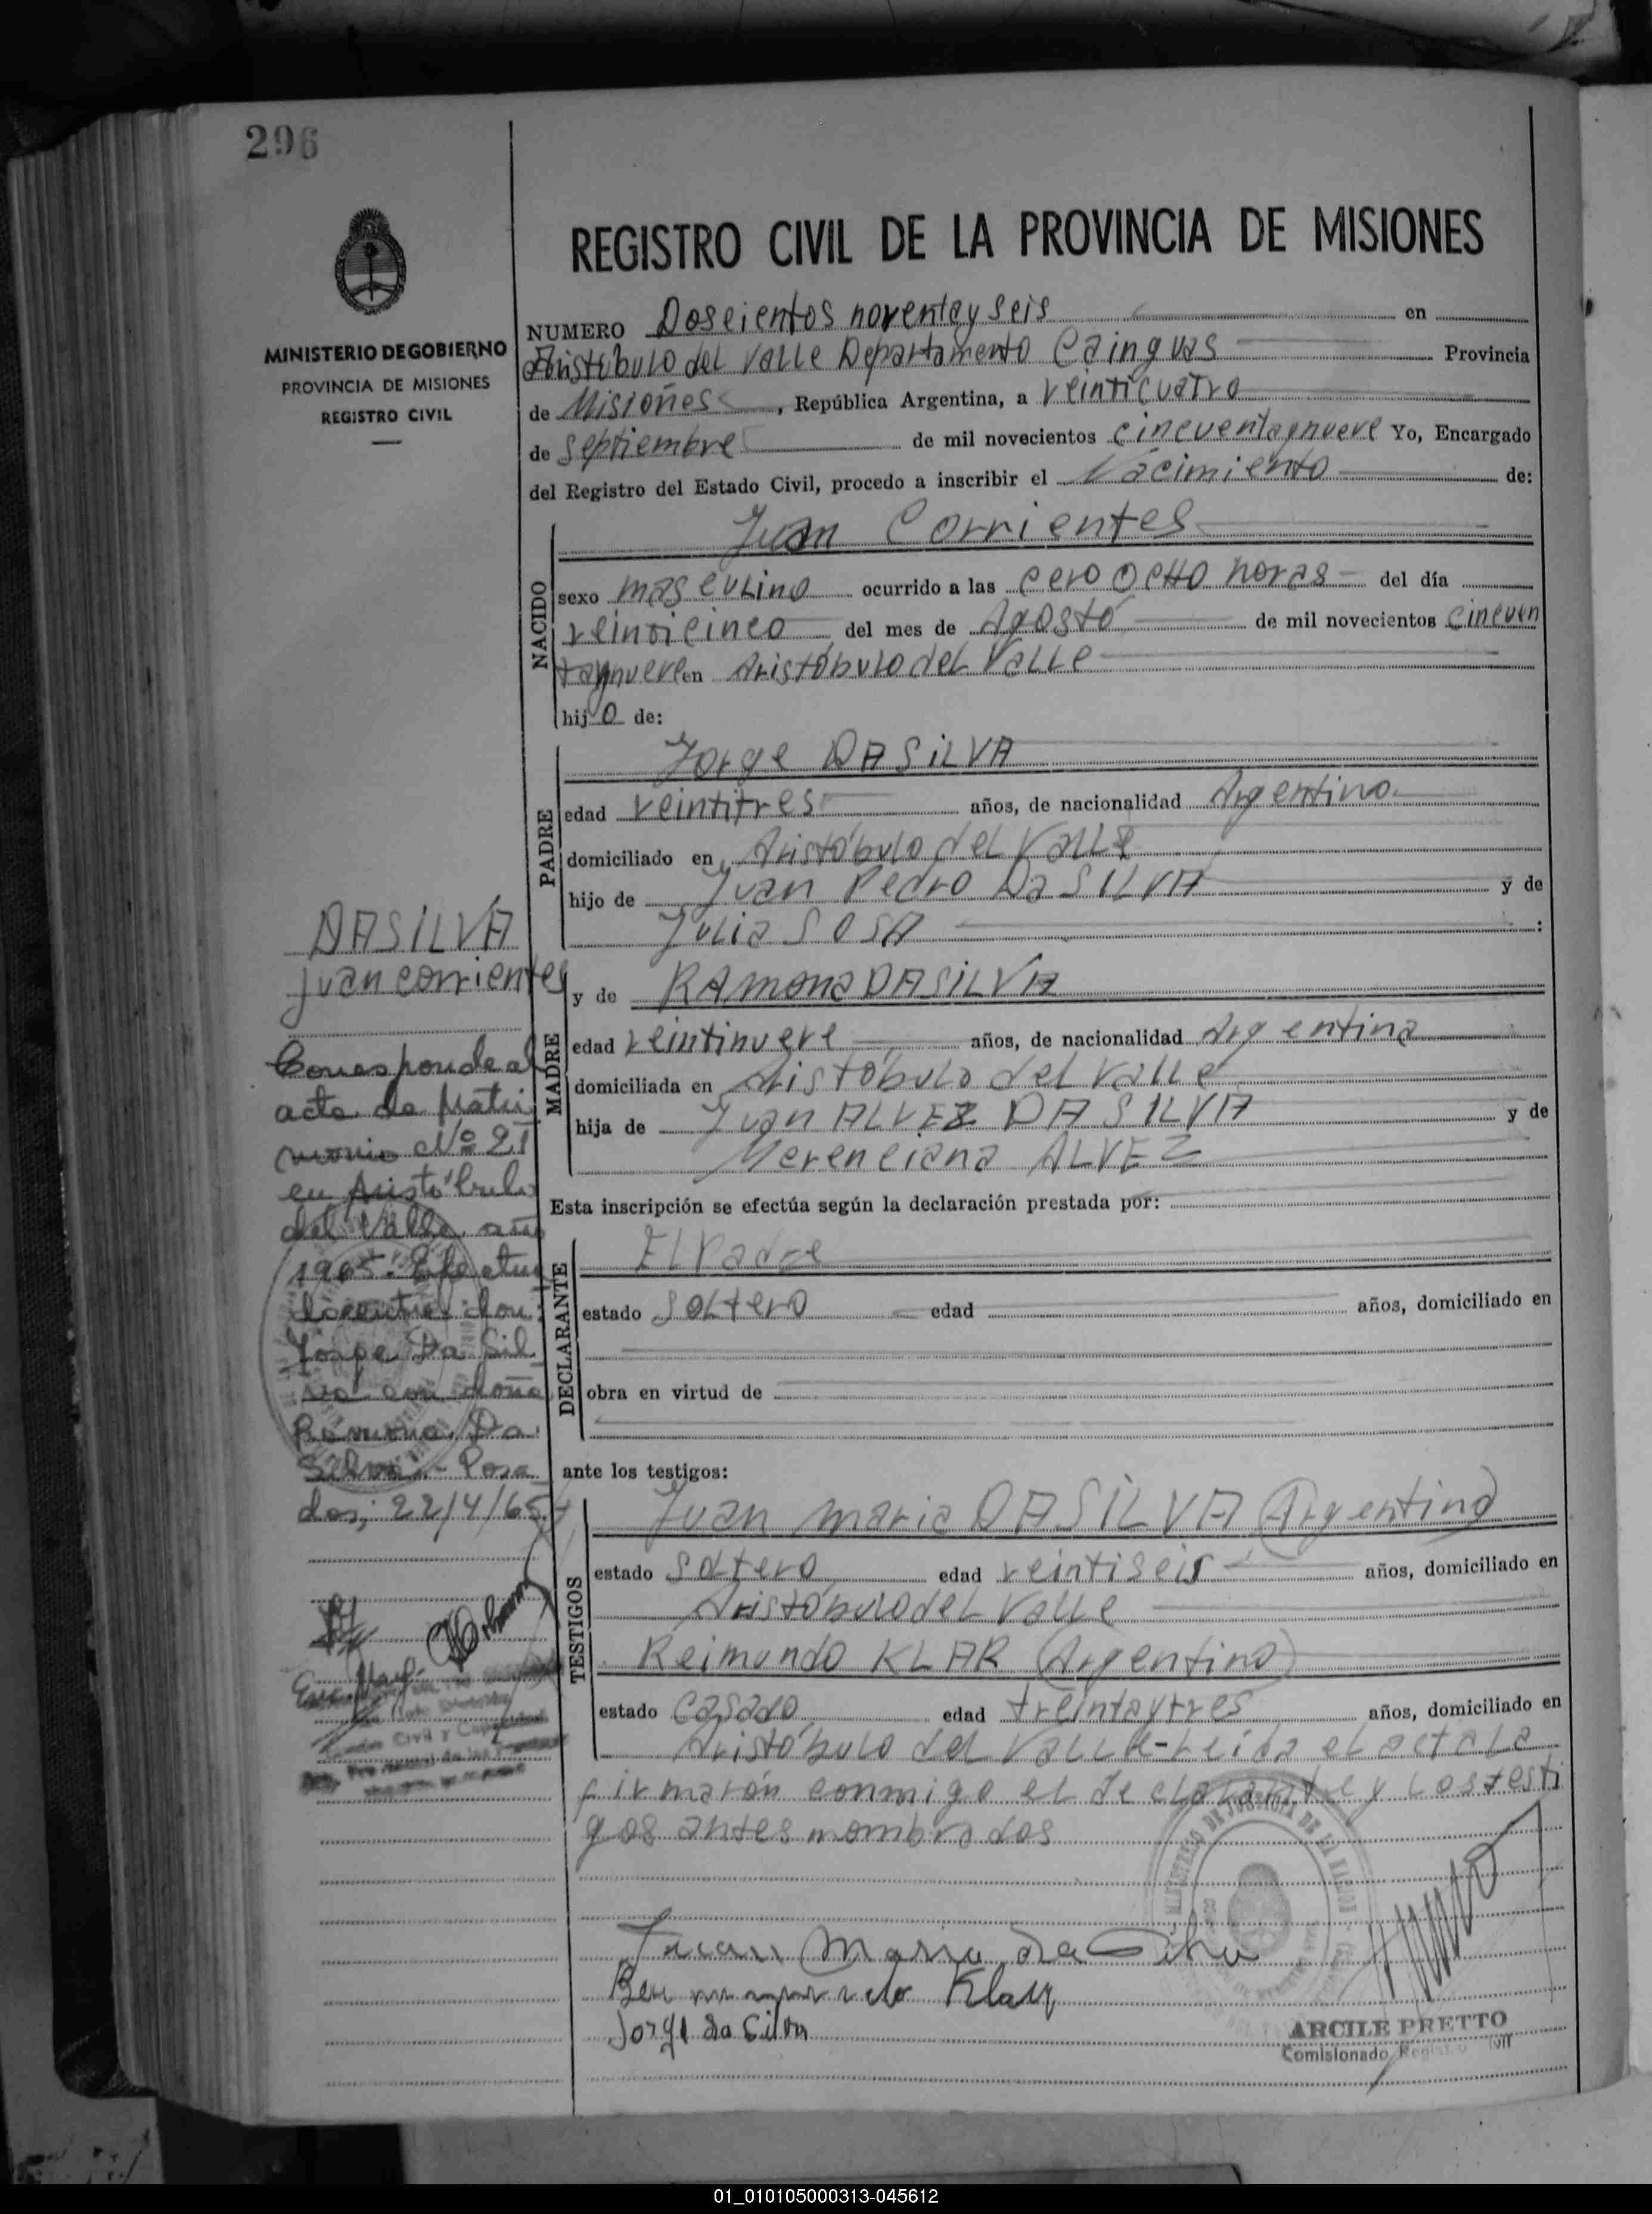 296
MINISTERIO DE GOBIERNO
PROVINCIA DE MISIONES
REGISTRO CIVIL
REGISTRO CIVIL DE LA PROVINCIA DE MISIONES
NUMERO Doscientos noventa y seis en
Aristóbulo del Valle Departamento Cainguas Provincia
de Misiones, República Argentina, a veinticuatro
de septiembre de mil novecientos cincuenta y nueve Yo, Encargado
del Registro del Estado Civil, procedo a inscribir el Nacimiento de:
NACIDO
Juan Corrientes
sexo masculino ocurrido a las cero ocho horas del día
veinticinco del mes de Agosto de mil novecientos cincuen
ta y nueve en Aristóbulo del Valle
hijo de:
PADRE
Jorge DASILVA
edad veintitres años, de nacionalidad Argentino
domiciliado en Aristóbulo del Valle
hijo de Juan Pedro DaSILVA y de
Julia SOSA :
MADRE
y de RAmona DASILVA
edad veintinueve años, de nacionalidad Argentina
domiciliada en Aristóbulo del Valle
hija de Juan ALVEZ DA SILVA y de
Merenciana ALVEZ
Esta inscripción se efectúa según la declaración prestada por:
DECLARANTE
El Padre
estado soltero edad años, domiciliado en
obra en virtud de
ante los testigos:
TESTIGOS
Juan maria DASILVA (Argentino)
estado soltero edad veintiseis años, domiciliado en
Aristóbulo del Valle
Reimundo KLAR (Argentino)
estado casado edad treinta y tres años, domiciliado en
Aristóbulo del Valle-Leida el acta la
firmarón conmigo el declarante y los testi
gos antes mombrados
Juan Maria da Silva
Klar
Jorge da Silva
MINISTERIO DE JUSTICIA DE LA NACION
ARCILE PRETTO
Comisionado Registro
DASILVA
Juan corrientes
Corresponde al
acta de Matri
monio Nº 21
en Aristóbulo
del Valle año
1965. Efectua
do entre don
Jorge Da Sil
va con doña
Ramona Da
Silva.- Posa
das; 22/4/65.
Civil y
01_010105000313-045612